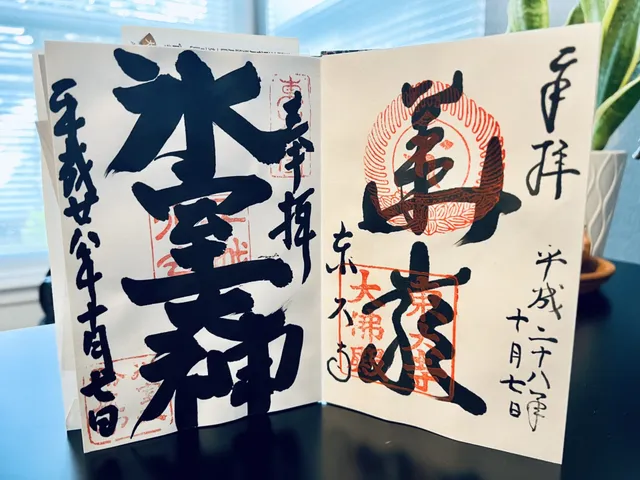 奉拝
平成二十八年
十月七日
華厳
東大寺
東大寺
大佛殿
奉拝
氷室大神
平成廿八年十月七日